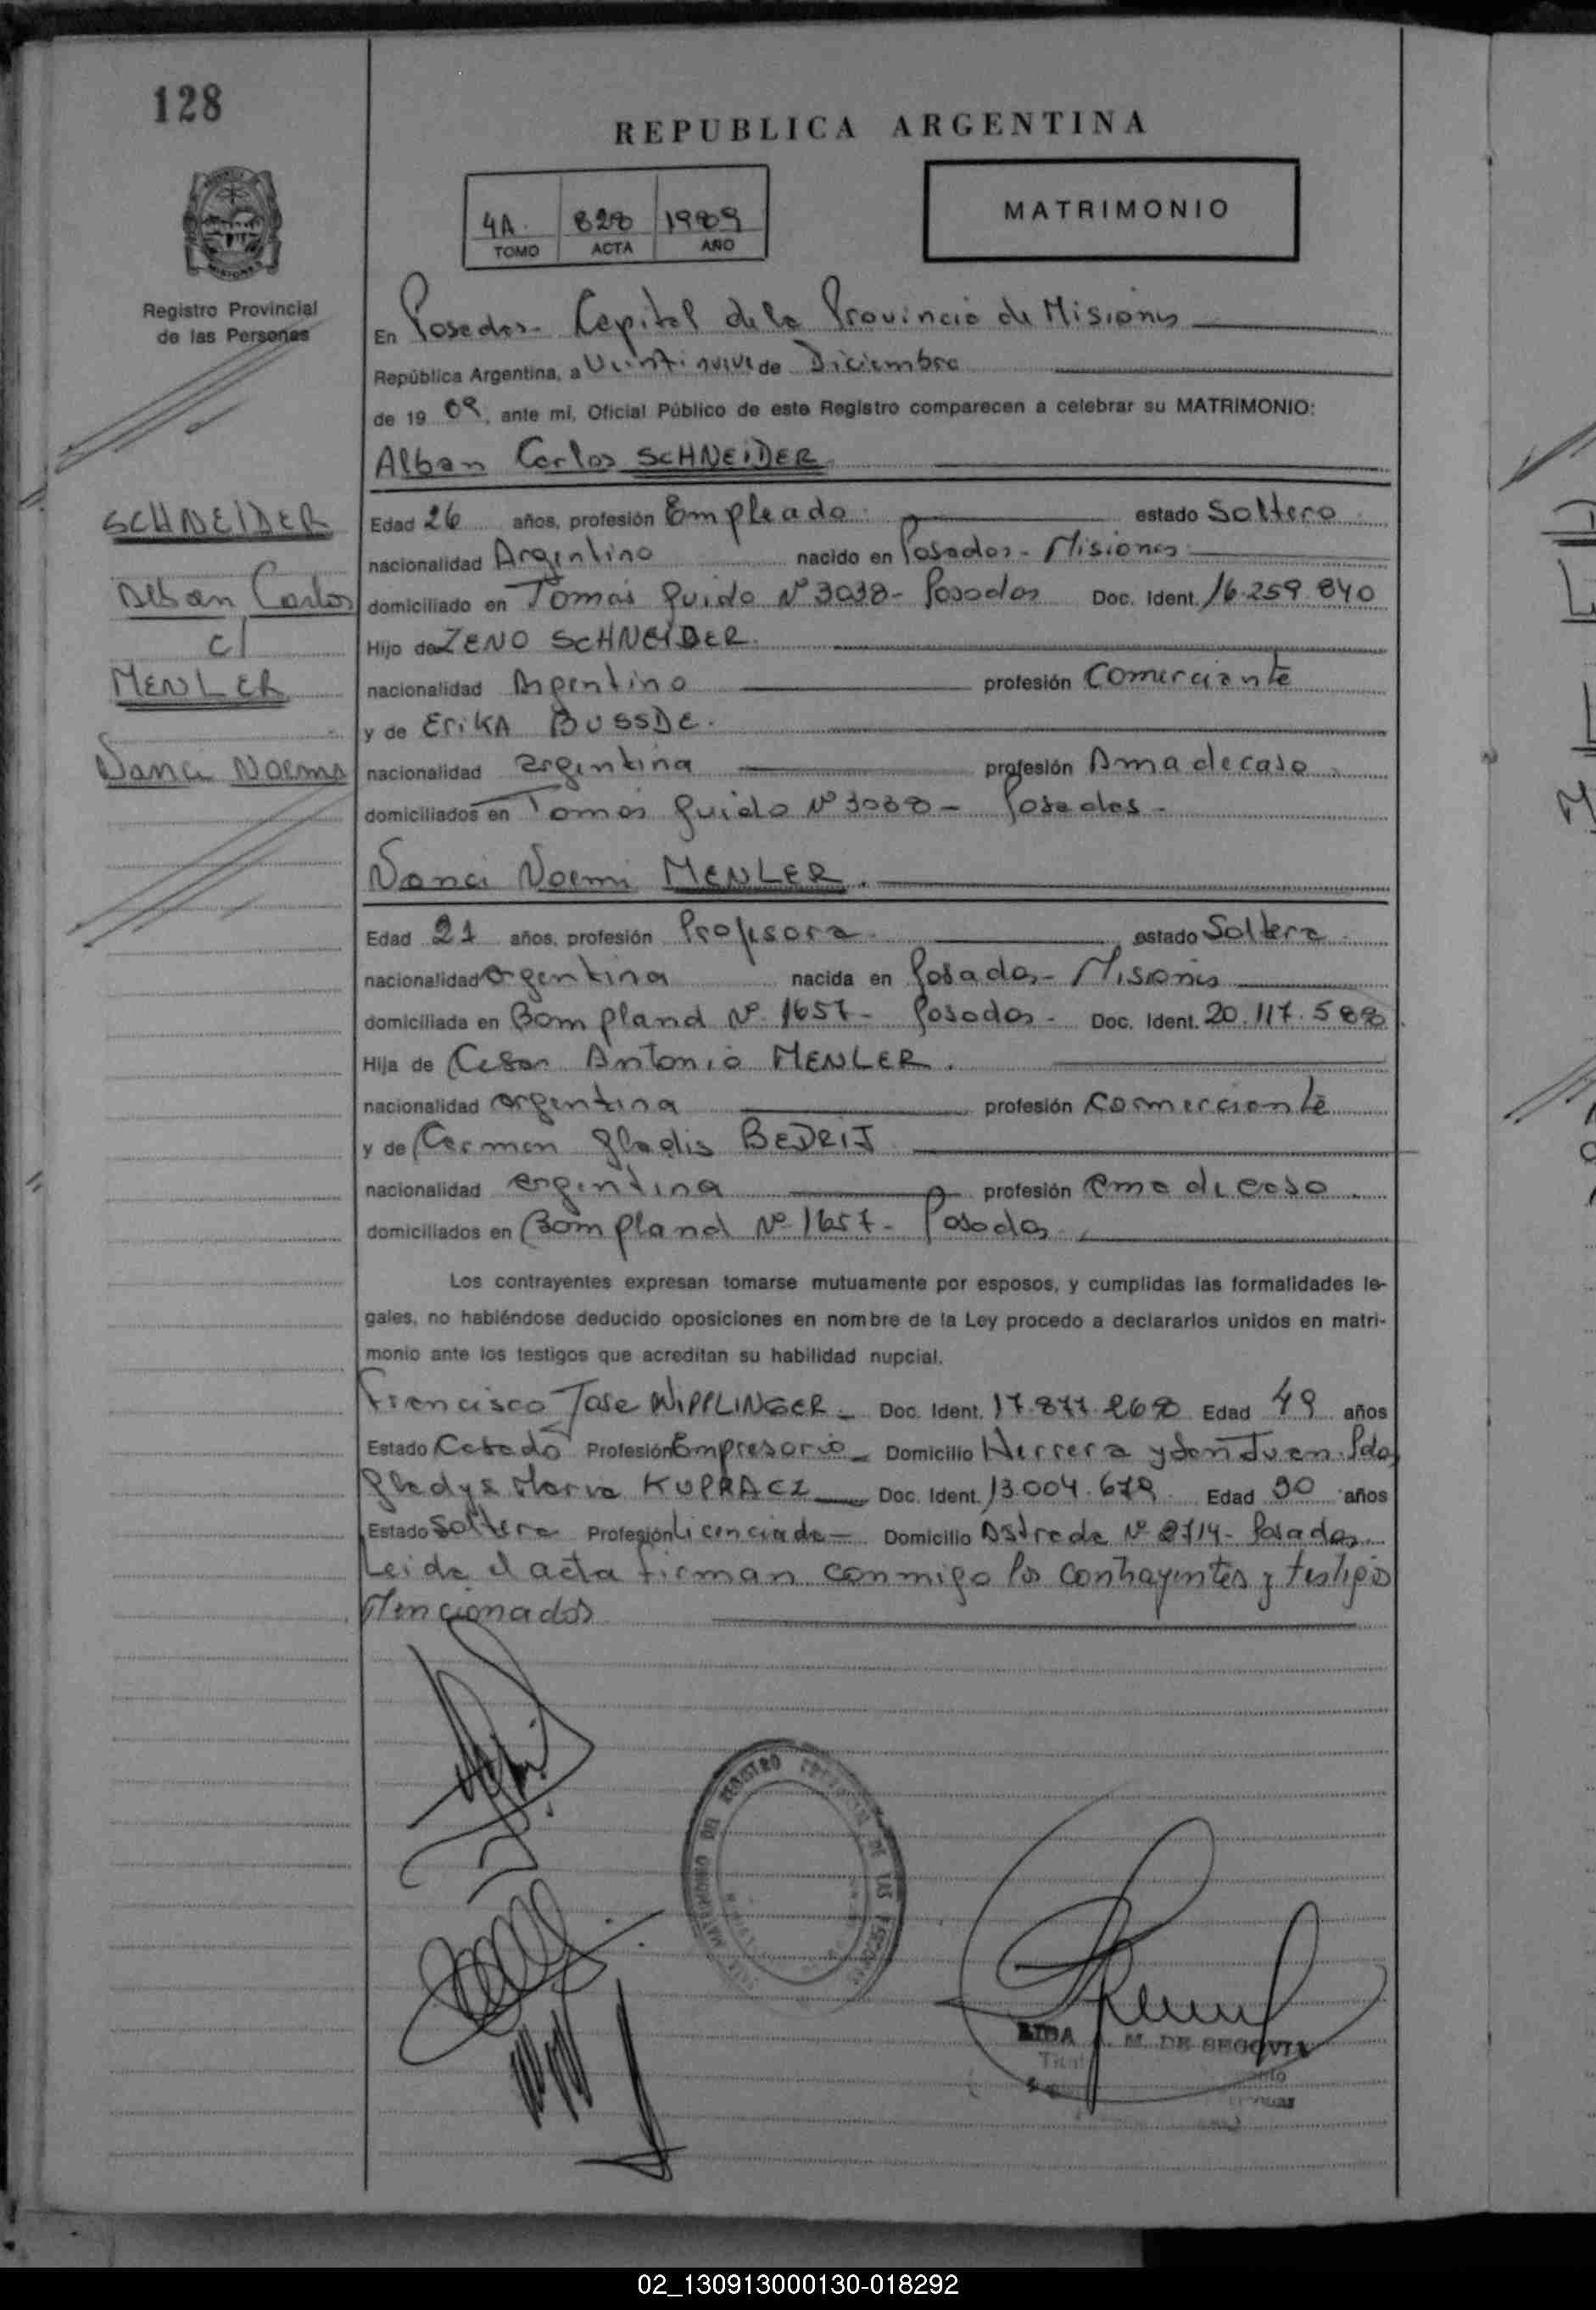 128
REPUBLICA ARGENTINA
4A. 828 1989
TOMO ACTA AÑO
MATRIMONIO
Registro Provincial
de las Personas
En Posadas - Capital de la Provincia de Misiones
República Argentina, a Veintinueve de Diciembre
de 19 89, ante mí, Oficial Público de este Registro comparecen a celebrar su MATRIMONIO:
Alban Carlos SCHNEIDER
SCHNEIDER
Alban Carlos
c/
MENLER
Nanci Noemi
Edad 26 años, profesión Empleado estado Soltero
nacionalidad Argentino nacido en Posadas - Misiones
domiciliado en Tomas Guido Nº 3038 - Posadas Doc. Ident. 16.259.840
Hijo de ZENO SCHNEIDER.
nacionalidad Argentino profesión Comerciante
y de ERIKA BUSSDE.
nacionalidad argentina profesión Ama de casa
domiciliados en Tomas Guido Nº 3038 - Posadas -
Nanci Noemi MENLER.
Edad 21 años, profesión Profesora estado Soltera
nacionalidad argentina nacida en Posadas - Misiones
domiciliada en Bompland Nº 1657 - Posadas - Doc. Ident. 20.117.588
Hija de Cesar Antonio MENLER.
nacionalidad argentina profesión comerciante
y de Carmen Gladis BEDRIJ
nacionalidad argentina profesión ama de casa
domiciliados en Bompland Nº 1657 - Posadas
Los contrayentes expresan tomarse mutuamente por esposos, y cumplidas las formalidades le-
gales, no habiéndose deducido oposiciones en nombre de la Ley procedo a declararlos unidos en matri-
monio ante los testigos que acreditan su habilidad nupcial.
Francisco Jose WIPPLINGER - Doc. Ident. 17.877.268 Edad 49 años
Estado Casado Profesión Empresario - Domicilio Herrera y San Juan. Pdas
Gladys Maria KUPRACZ Doc. Ident. 13.004.679 Edad 30 años
Estado Soltera Profesión Licenciada - Domicilio Astrada Nº 2714 - Posadas
Leida el acta firman conmigo los contrayentes y testigos
Mencionados
REGISTRO PROVINCIAL DE LAS PERSONAS
M. DE SEGOVIA
02_130913000130-018292